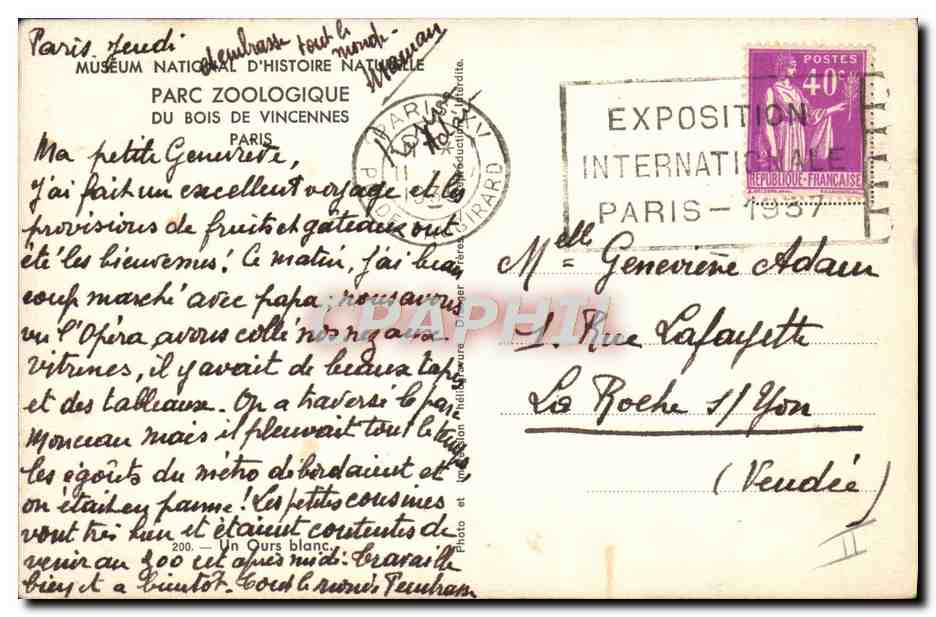 Paris. Jeudi
MUSÉUM NATIONAL D'HISTOIRE NATURELLE
PARC ZOOLOGIQUE
DU BOIS DE VINCENNES
PARIS
Ma petite Geneviève,
j'ai fait un excellent voyage et les
provisions de fruits et gâteaux ont
été les bienvenues! Ce matin, j'ai beau
coup marché avec papa; nous avons
vu l'Opéra, avons collé nos nez aux
vitrines, il y avait de beaux tapis
et des tableaux. On a traversé le parc
Monceau mais il pleuvait tout le temps,
les égoûts du métro débordaient et
on était en panne! Les petites cousines
vont très bien et étaient contentes de
200. — Un Ours blanc.
venir au zoo cet après midi. Travaille
bien et à bientôt. Tout le monde t'embrasse
embrasse tout le
monde.
Maman
PARIS XV
GIRARD
Photo et Impression héliogravure Draeger Frères Reproduction Interdite.
CPAPHIL
POSTES
40c
RÉPUBLIQUE-FRANÇAISE
EXPOSITION
INTERNATIONALE
PARIS - 1937
Melle Geneviève Adam
1. Rue Lafayette
La Roche s/Yon
(Vendée)
II